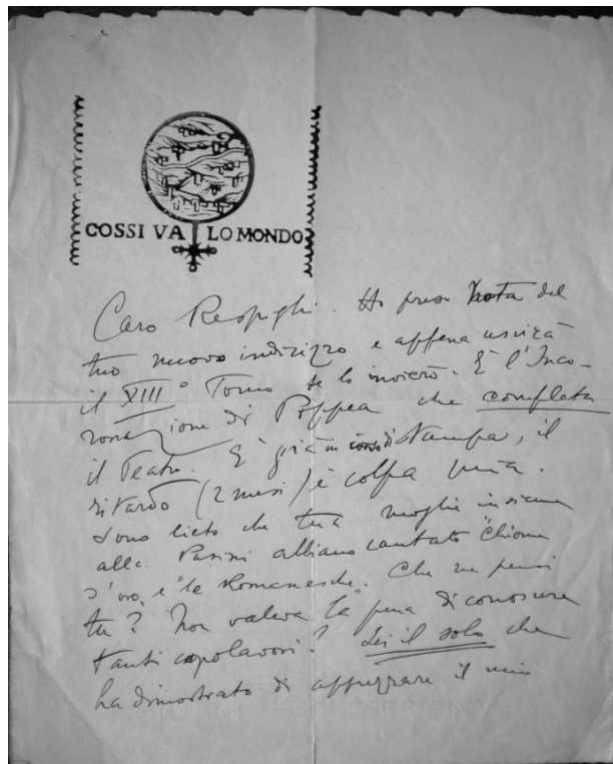 COSSI VA LO MONDO
Caro Respighi. Ho preso nota del
tuo nuovo indirizzo e appena uscirà
il XIII° Tomo te lo invierò. È l'Inco-
ronazione di Poppea che completa
il Teatro. È già in corso di stampa, il
ritardo (2 mesi) è colpa mia.
Sono lieto che tua moglie insieme
alla Pasini abbiano cantato "Chiome
d'oro" e "le Romanesche". Che ne pensi
tu? Non valeva la pena di conoscere
tanti capolavori? Sei il solo che
ha dimostrato di apprezzare il mio